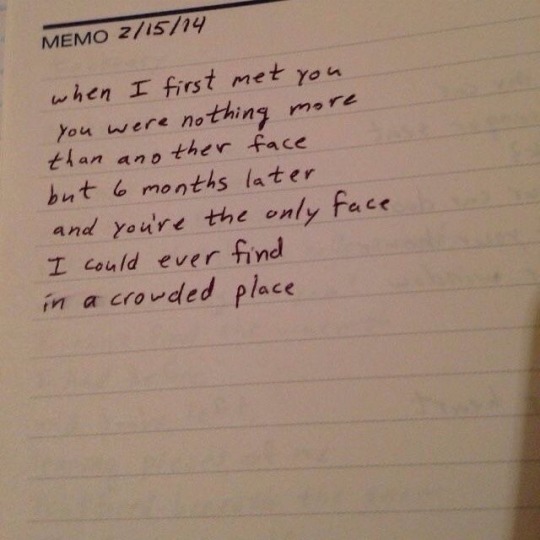 MEMO 2/15/14
when I first met you
you were nothing more
than another face
but 6 months later
and you're the only face
I could ever find
in a crowded place